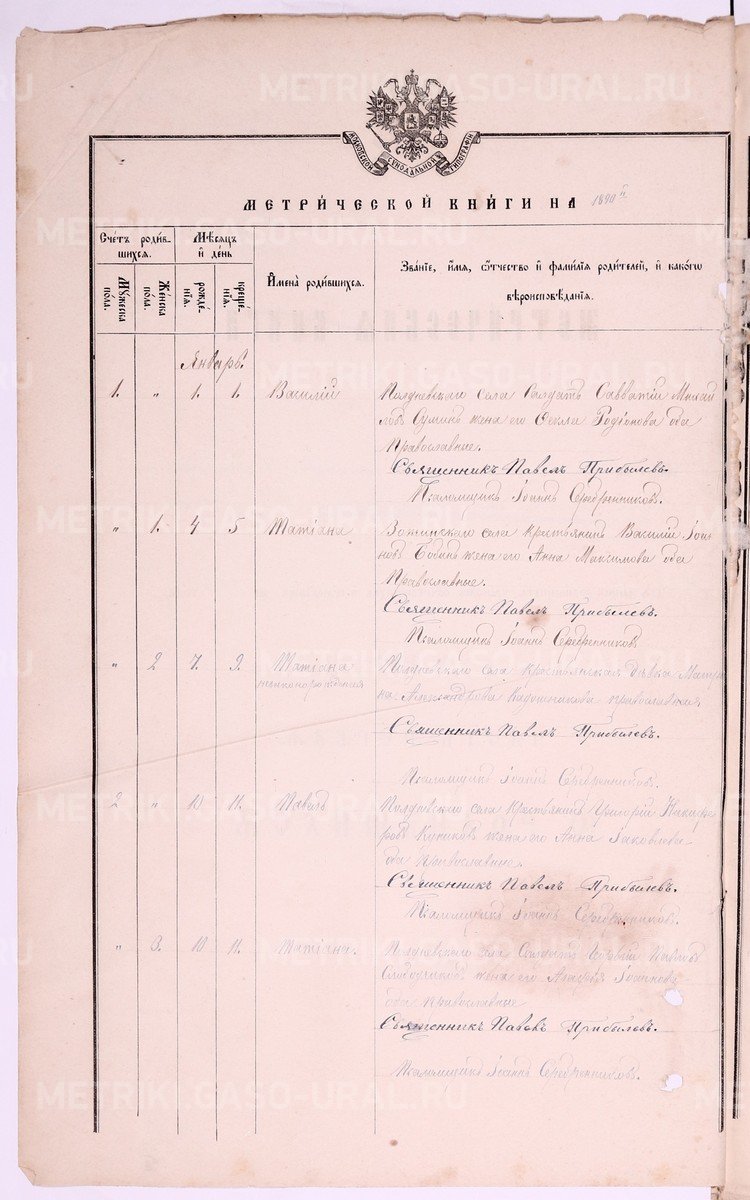 METRIKI.GASO-URAL.RU
МОСКОВСКОЙ СѴНОДАЛЬНОЙ ТИПОГРАФІИ
МЕТРИ́ЧЕСКОЙ КНИ́ГИ НА 1890
Сче́тъ роди́в-
шихся.
Мѣ́сяцъ
и҆ де́нь
Мꙋ́жеска
пола.
Же́нска
пола.
рожде́-
нїѧ.
креще́-
нїѧ.
И҆мена̀ роди́вшихся.
Зва́нїе, и҆́мѧ, ѻ҆́тчество и҆ фами́лїѧ роди́телей, и҆ како́гѡ
вѣроисповѣ́данїѧ.
Январь.
1. " 1. 1. Василій
Полдневскаго села Солдатъ Савватій Михаи
ловъ Суминъ жена его Ѳекла Родіонова оба
Православные.
Священникъ Павелъ Прибылевъ.
Псаломщикъ Іоаннъ Серебренниковъ.
" 1. 4 5 Татіана
села крестьянинъ Василій
жена его Анна Максимова оба
Православные.
Священникъ Павелъ Прибылевъ.
Псаломщикъ Іоаннъ Серебренниковъ
" 2 7. 9. Татіана
незаконорожденная
Полдневскаго села крестьянская дѣвка Матре
на Александрова православная
Священникъ Павелъ Прибылевъ.
Псаломщикъ Іоаннъ Серебренниковъ.
2 " 10 11. Павелъ
Полдневскаго села крестьянинъ Григорій
жена его Анна Іаковлева
оба православные.
Священникъ Павелъ Прибылевъ.
Псаломщикъ Іоаннъ Серебренниковъ.
" 3. 10 11. Татіана.
Полдневскаго села Солдатъ Павловъ
жена его Іоаннова
оба православные
Священникъ Павелъ Прибылевъ.
Псаломщикъ Іоаннъ Серебренниковъ.